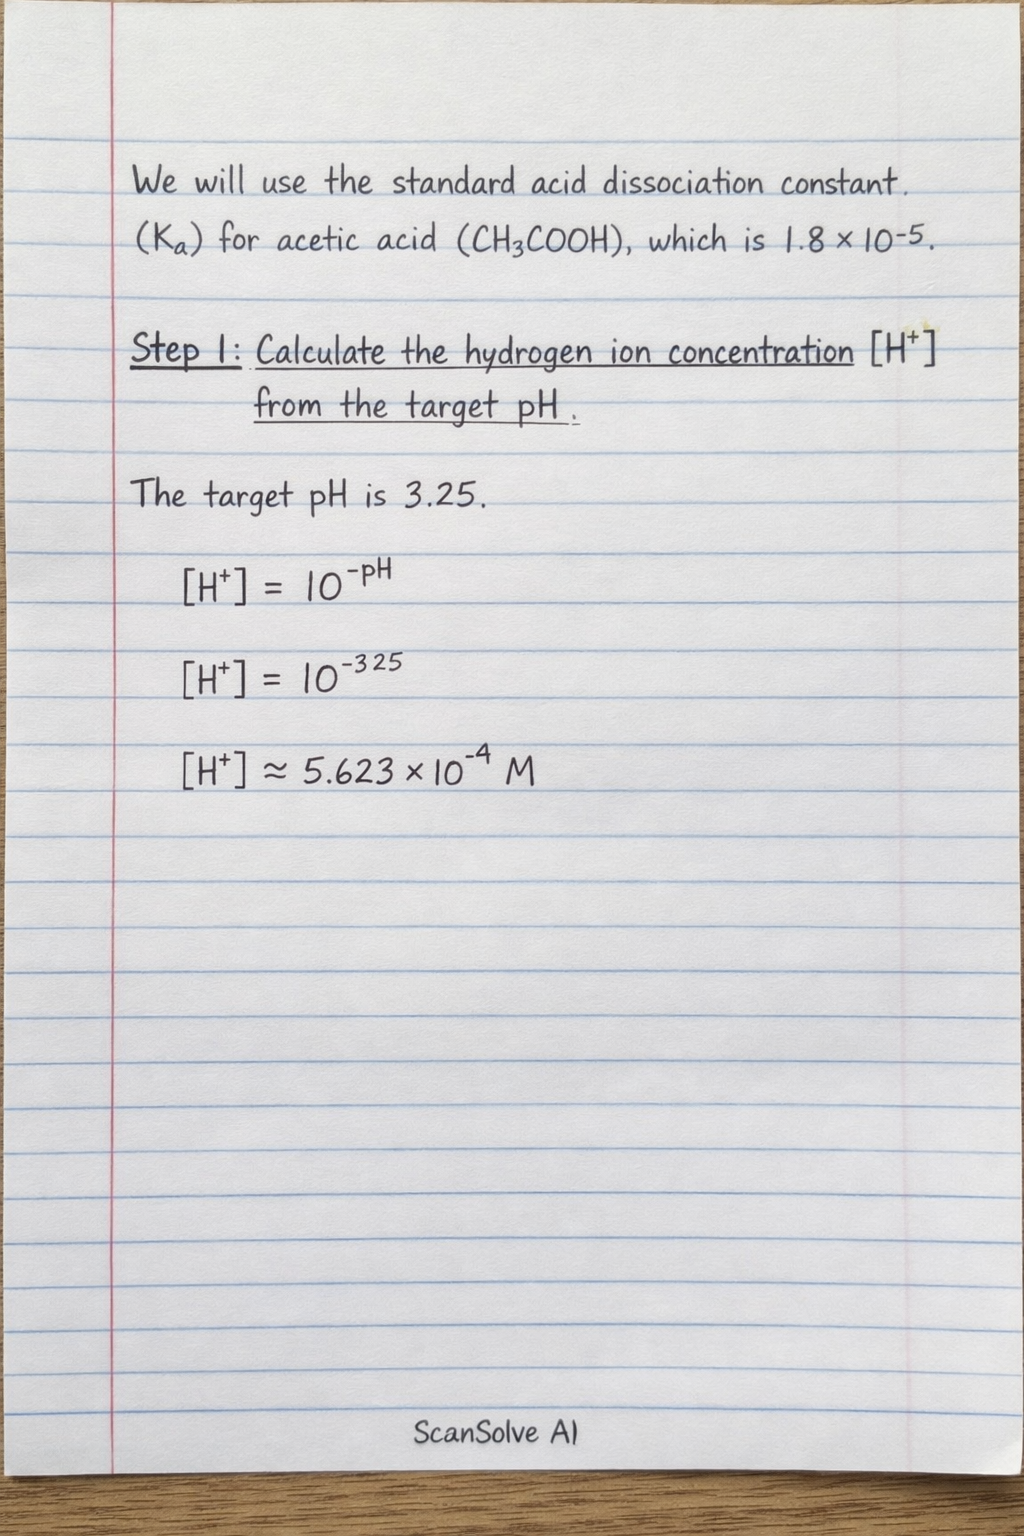 We will use the standard acid dissociation constant.
(Kₐ) for acetic acid (CH₃COOH), which is 1.8 × 10⁻⁵.
Step 1: Calculate the hydrogen ion concentration [H⁺]
from the target pH.
The target pH is 3.25.
[H⁺] = 10^-pH
[H⁺] = 10^-325
[H⁺] ≈ 5.623 × 10⁻⁴ M
ScanSolve AI